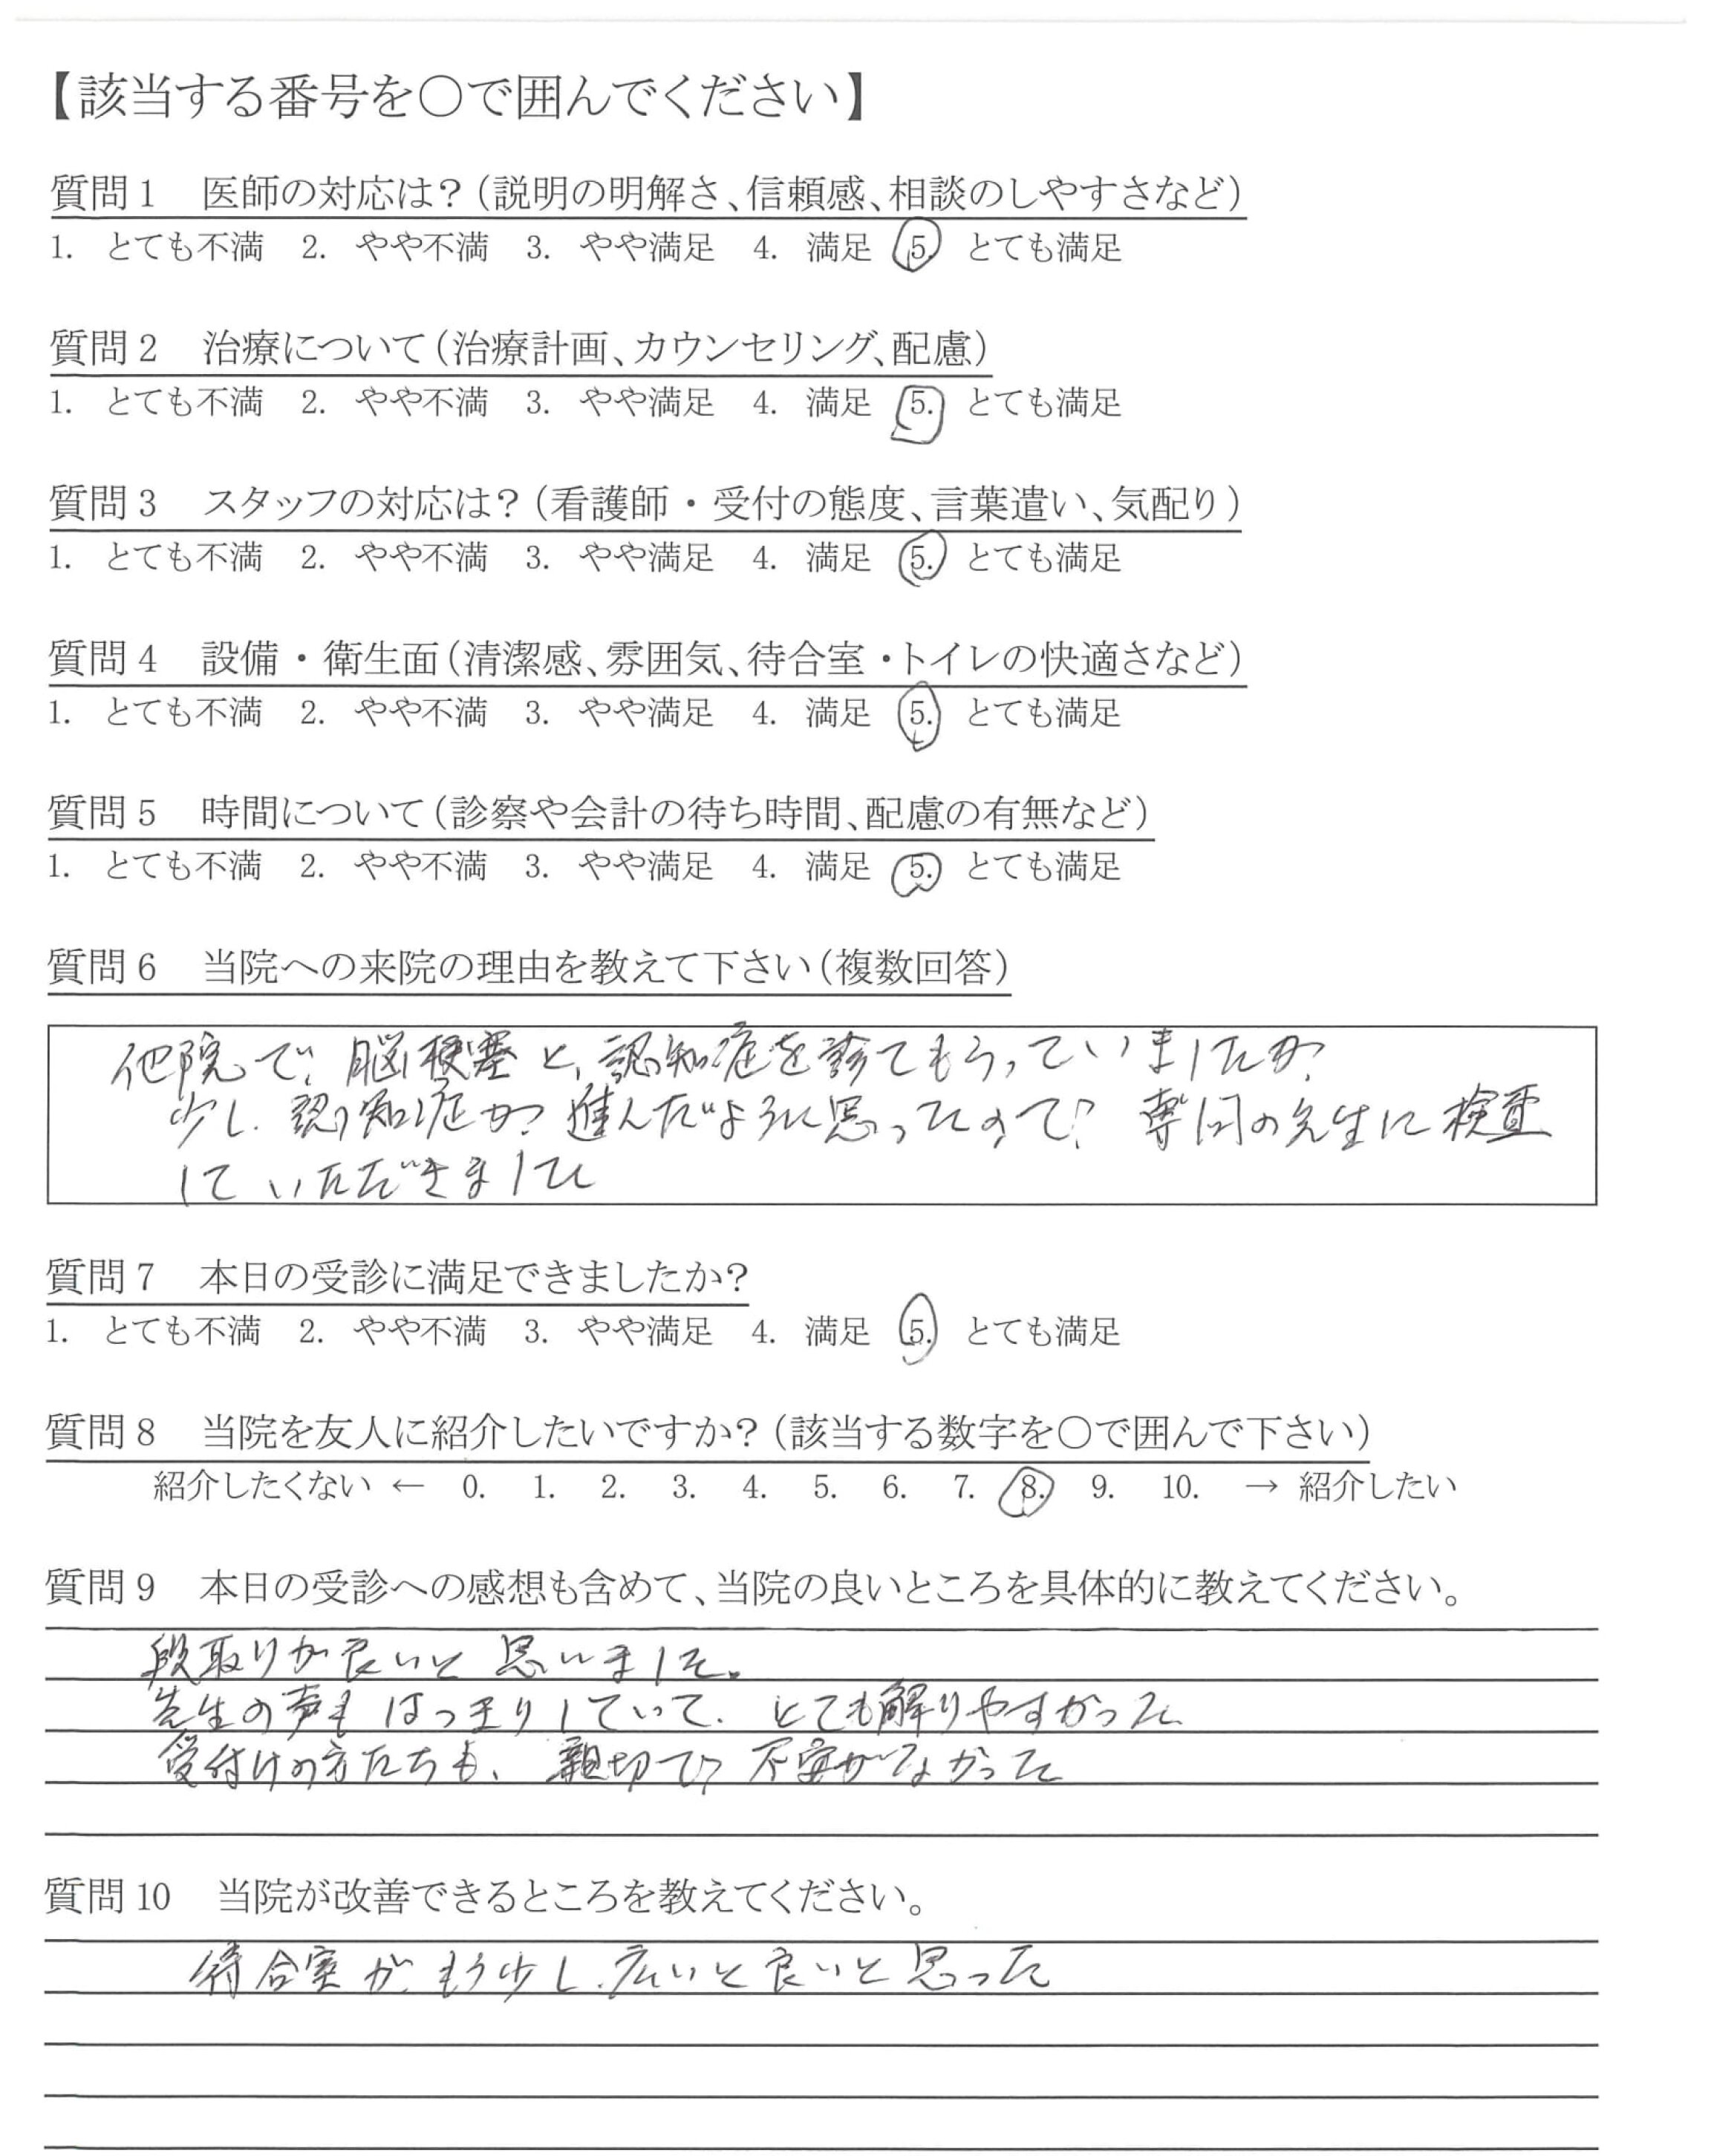 【該当する番号を〇で囲んでください】
質問1　医師の対応は？（説明の明解さ、信頼感、相談のしやすさなど）
1.　とても不満　2.　やや不満　3.　やや満足　4.　満足　5.　とても満足
質問2　治療について（治療計画、カウンセリング、配慮）
1.　とても不満　2.　やや不満　3.　やや満足　4.　満足　5.　とても満足
質問3　スタッフの対応は？（看護師・受付の態度、言葉遣い、気配り）
1.　とても不満　2.　やや不満　3.　やや満足　4.　満足　5.　とても満足
質問4　設備・衛生面（清潔感、雰囲気、待合室・トイレの快適さなど）
1.　とても不満　2.　やや不満　3.　やや満足　4.　満足　5.　とても満足
質問5　時間について（診察や会計の待ち時間、配慮の有無など）
1.　とても不満　2.　やや不満　3.　やや満足　4.　満足　5.　とても満足
質問6　当院への来院の理由を教えて下さい（複数回答）
他院で、脳梗塞と、認知症を診てもらっていましたが
少し、認知症が進んだように思ったので、専門の先生に検査
していただきました
質問7　本日の受診に満足できましたか？
1.　とても不満　2.　やや不満　3.　やや満足　4.　満足　5.　とても満足
質問8　当院を友人に紹介したいですか？（該当する数字を〇で囲んで下さい）
紹介したくない ← 0.　1.　2.　3.　4.　5.　6.　7.　8.　9.　10.　→ 紹介したい
質問9　本日の受診への感想も含めて、当院の良いところを具体的に教えてください。
段取りが良いと思いました。
先生の声もはっきりしていて、とても解りやすかった
受付けの方たちも、親切で不安がなかった
質問10　当院が改善できるところを教えてください。
待合室が、もう少し、広いと良いと思った